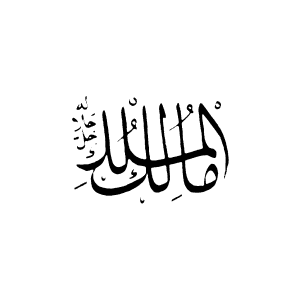 مالك الملك
جل جلاله